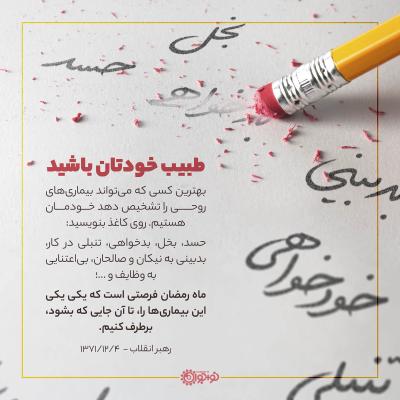 بخل
حسد
بدخواهی
طبیب خودتان باشید
بهترین کسی که می‌تواند بیماری‌های
روحی را تشخیص دهد خودمان
هستیم. روی کاغذ بنویسید:
حسد، بخل، بدخواهی، تنبلی در کار،
بدبینی به نیکان و صالحان، بی‌اعتنایی
به وظایف و ...؛
ماه رمضان فرصتی است که یکی یکی
این بیماری‌ها را، تا آن جایی که بشود،
برطرف کنیم.
رهبر انقلاب - ۱۳۷۱/۱۲/۴
بدبینی
خودخواهی
تنبلی